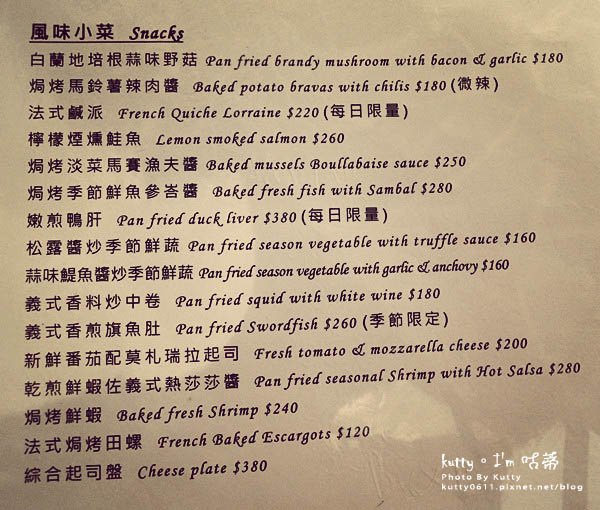 風味小菜 Snacks
白蘭地培根蒜味野菇 Pan fried brandy mushroom with bacon & garlic $180
焗烤馬鈴薯辣肉醬 Baked potato bravas with chilis $180 (微辣)
法式鹹派 French Quiche Lorraine $220 (每日限量)
檸檬煙燻鮭魚 Lemon smoked salmon $260
焗烤淡菜馬賽漁夫醬 Baked mussels Boullabaise sauce $250
焗烤季節鮮魚參峇醬 Baked fresh fish with Sambal $280
嫩煎鴨肝 Pan fried duck liver $380 (每日限量)
松露醬炒季節鮮蔬 Pan fried season vegetable with truffle sauce $160
蒜味鯷魚醬炒季節鮮蔬 Pan fried season vegetable with garlic & anchovy $160
義式香料炒中卷 Pan fried squid with white wine $180
義式香煎旗魚肚 Pan fried Swordfish $260 (季節限定)
新鮮番茄配莫札瑞拉起司 Fresh tomato & mozzarella cheese $200
乾煎鮮蝦佐義式熱莎莎醬 Pan fried seasonal Shrimp with Hot Salsa $280
焗烤鮮蝦 Baked fresh Shrimp $240
法式焗烤田螺 French Baked Escargots $120
綜合起司盤 Cheese plate $380
kutty。I'm 咕蒂
Photo By Kutty
kutty0611.pixnet.net/blog